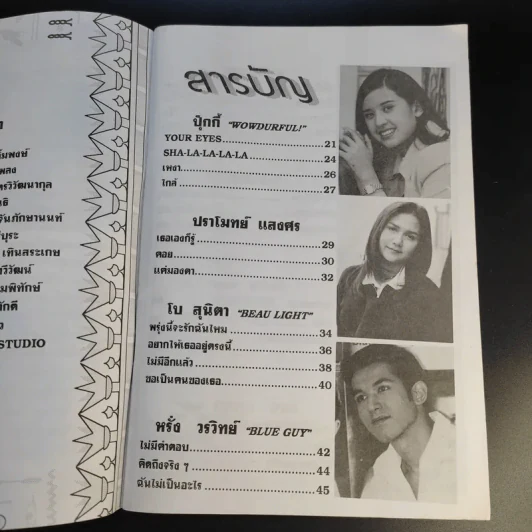 สารบัญ
ปุ๊กกี้ "WOWDURFUL!"
YOUR EYES 21
SHA-LA-LA-LA-LA 24
เหงา 26
ใกล้ 27
ปราโมทย์ แสงศร
เธอเองก็รู้ 29
คอย 30
แค่มองตา 32
โบ สุนิตา "BEAU LIGHT"
พรุ่งนี้จะรักฉันไหม 34
อยากให้เธออยู่ตรงนี้ 36
ไม่มีอีกแล้ว 38
ขอเป็นคนของเธอ 40
หรั่ง วรวิทย์ "BLUE GUY"
ไม่มีคำตอบ 42
คิดถึงจริง ๆ 44
ฉันไม่เป็นอะไร 45
เทินสระเกษ
STUDIO